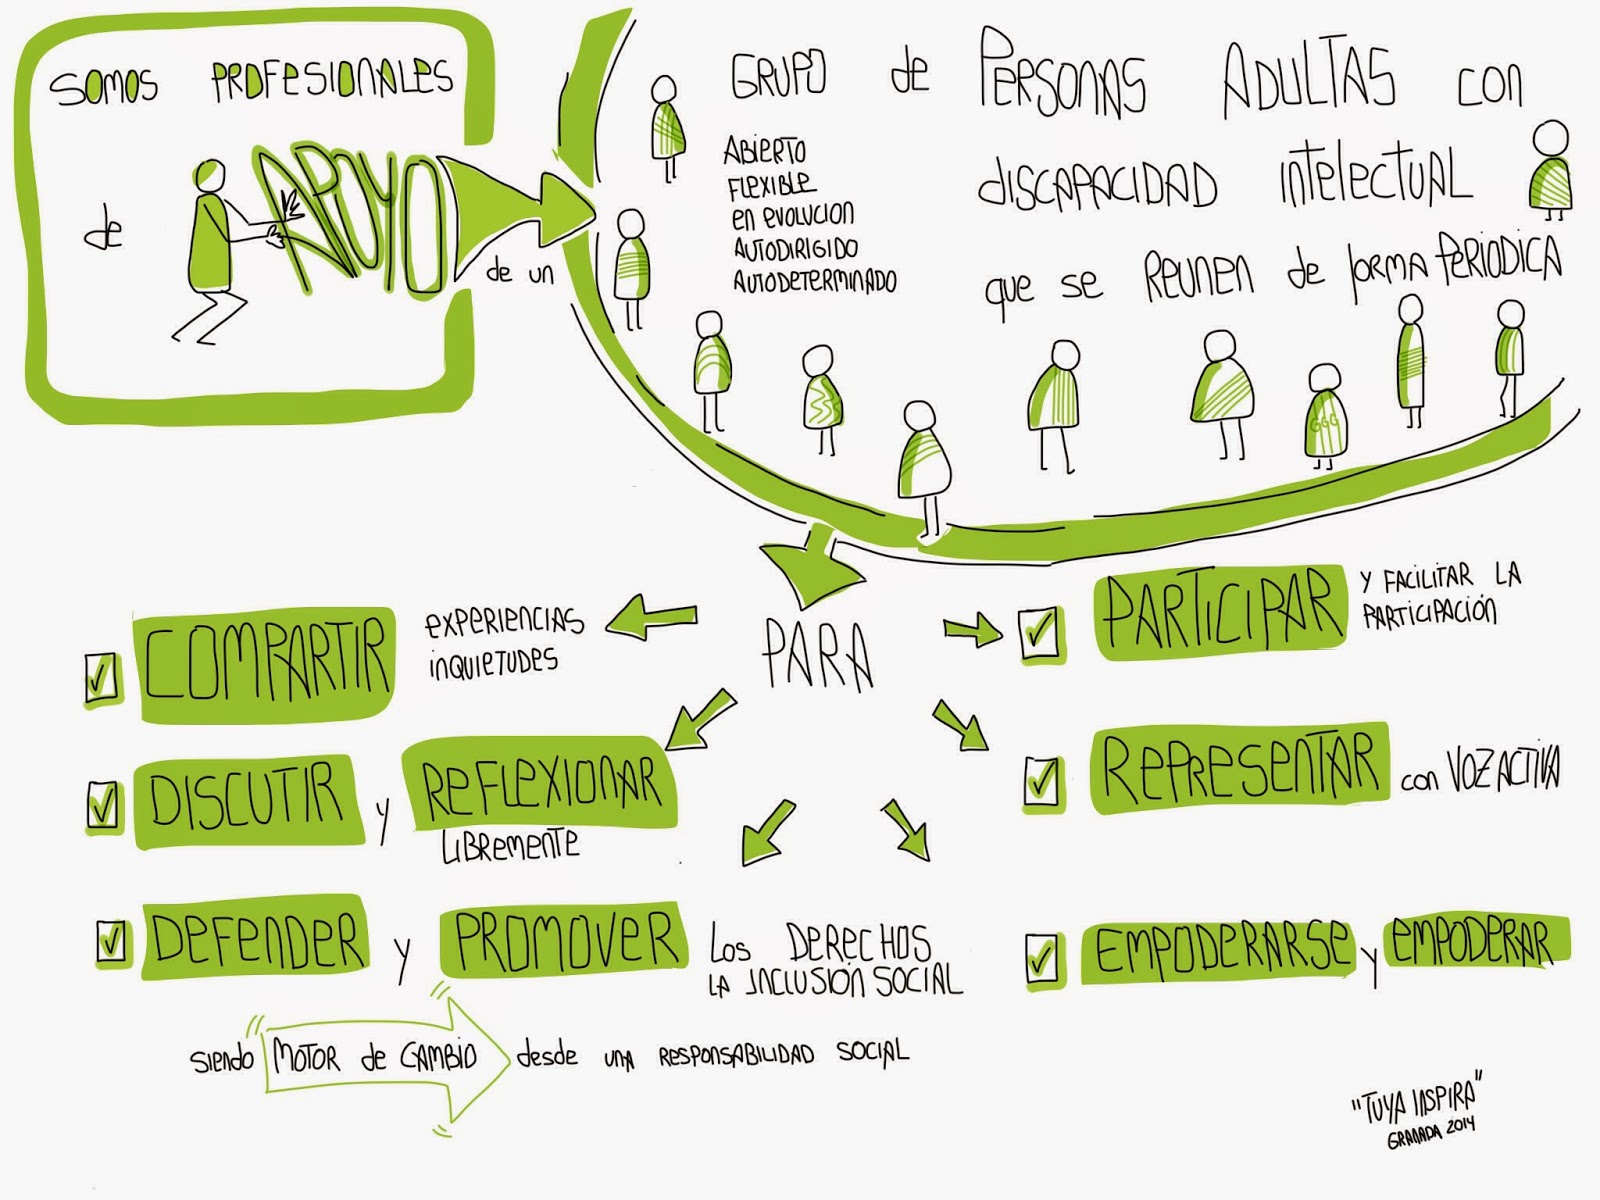 SOMOS PROFESIONALES
de APOYO
de un
GRUPO de PERSONAS ADULTAS CON
DISCAPACIDAD INTELECTUAL
que se REUNEN de forma PERIODICA
ABIERTO
FLEXIBLE
EN EVOLUCION
AUTODIRIGIDO
AUTODETERMINADO
PARA
COMPARTIR EXPERIENCIAS
INQUIETUDES
DISCUTIR y REFLEXIONAR
LIBREMENTE
DEFENDER y PROMOVER LOS DERECHOS
LA INCLUSIÓN SOCIAL
SIENDO MOTOR de CAMBIO desde UNA RESPONSABILIDAD SOCIAL
PARTICIPAR Y FACILITAR LA
PARTICIPACIÓN
REPRESENTAR CON VOZ ACTIVA
EMPODERARSE y EMPODERAR
"TUYA INSPIRA"
GRANADA 2014